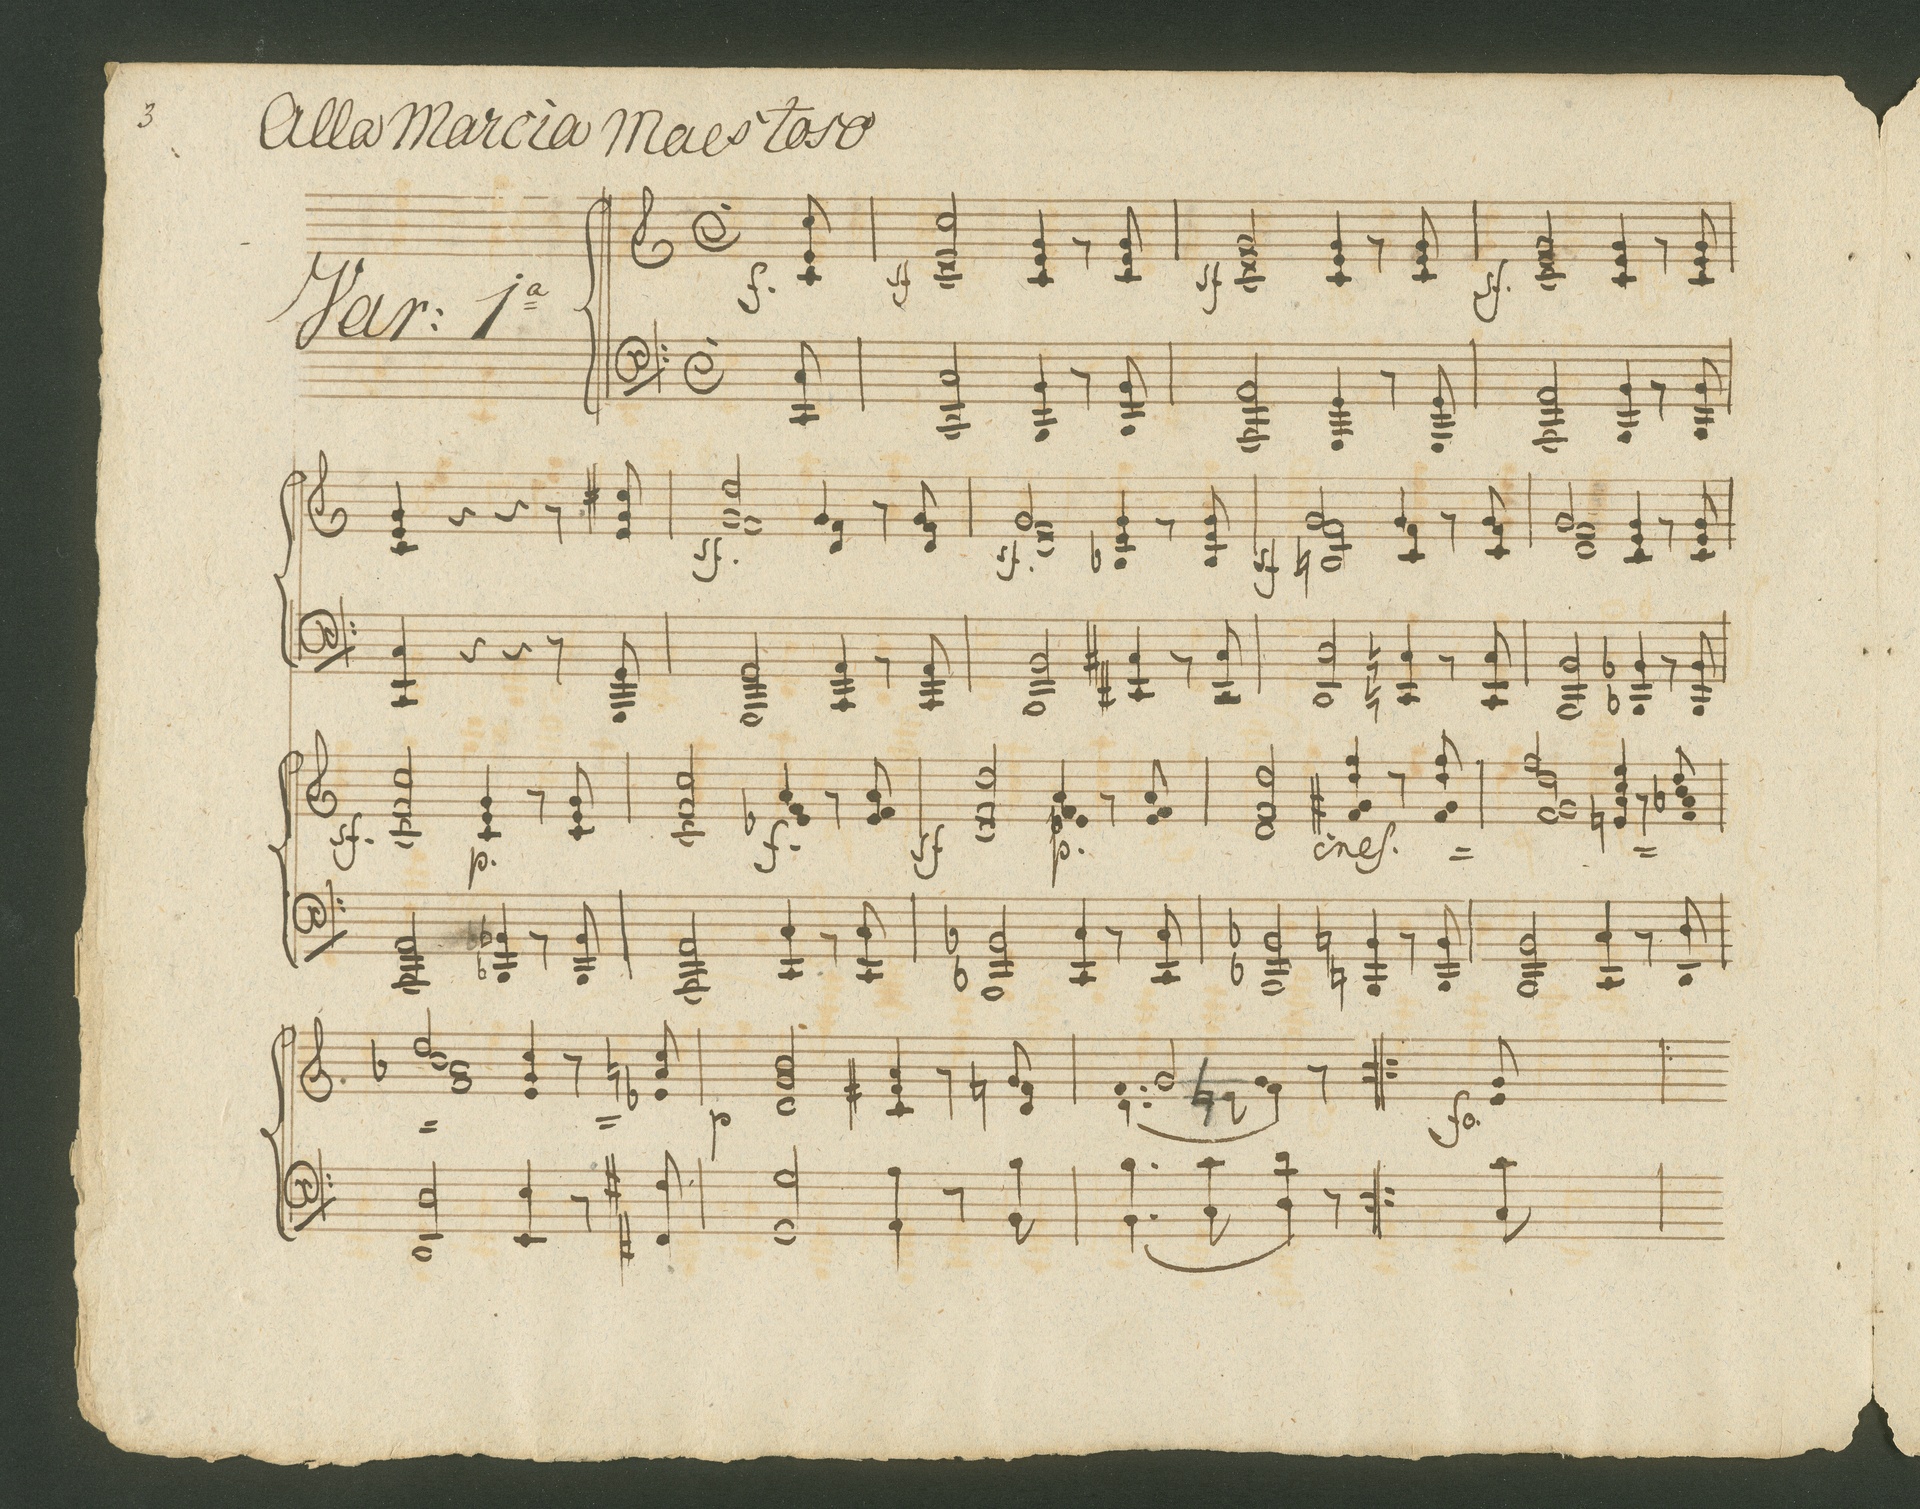 3
Alla Marcia Maestoso
Var: 1ª
f. sf sf sf.
sf. sf. sf
sf. p. sf. sf p. cresf. =
= = p fo.